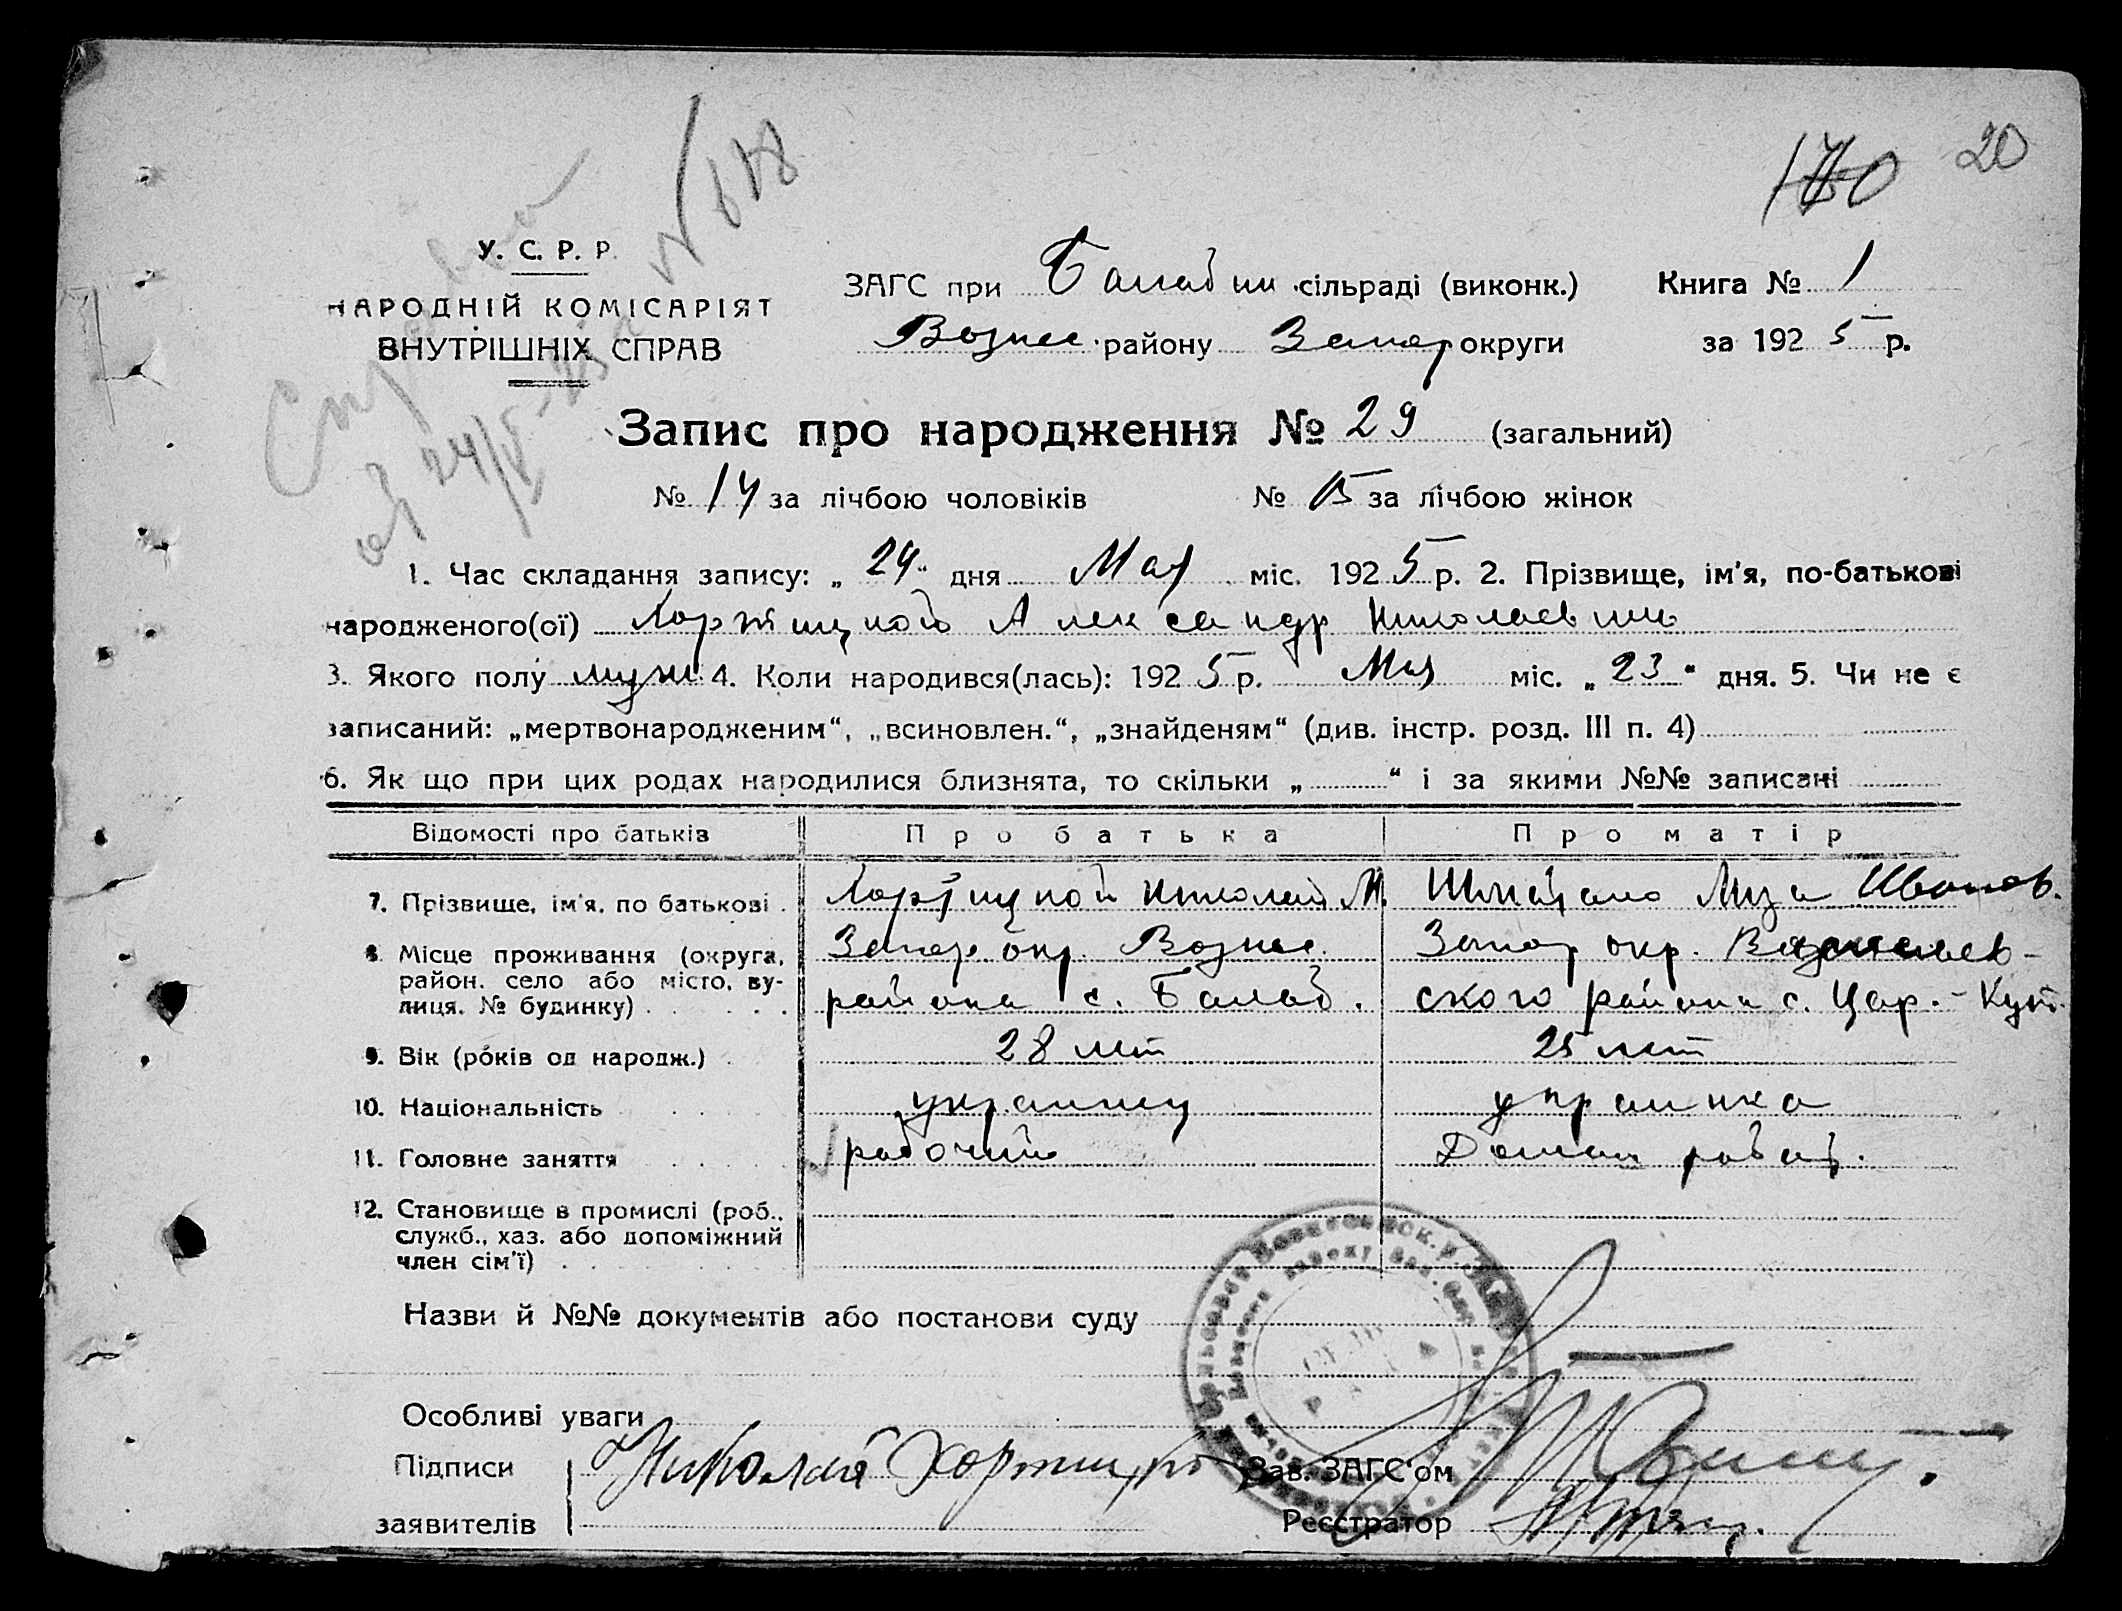 170 20
Справка
№ 618
от 24/V-25
У. С. Р. Р.
НАРОДНІЙ КОМІСАРІЯТ
ВНУТРІШНІХ СПРАВ
ЗАГС при Балабин. сільраді (виконк.) Книга № 1
Вознес. району Запор округи за 1925 р.
Запис про народження № 29 (загальний)
№ 14 за лічбою чоловіків № 15 за лічбою жінок
1. Час складання запису: „24“ дня Мая міс. 1925 р. 2. Прізвище, ім'я, по-батькові
народженого(ої) Хортицкой Александр Николаевич
3. Якого полу муж 4. Коли народився(лась): 1925 р. Мая міс. „23“ дня. 5. Чи не є
записаний: „мертвонародженим“, „всиновлен.“, „знайденям“ (див. інстр. розд. III п. 4)
6. Як що при цих родах народилися близнята, то скільки „ “ і за якими №№ записані
Відомості про батьків Про батька Про матір
7. Прізвище, ім'я, по батькові Хортицкой Николай М. Лиза Иванов.
8. Місце проживання (округа, район, село або місто, вулиця, № будинку) Запор окр. Вознес. Запор окр. Васильев-
района с. Балаб. ского района с. Цар.-Кут.
9. Вік (років од народж.) 28 лет 25 лет
10. Національність украинец украинка
11. Головне заняття рабочий Домаш работ.
12. Становище в промислі (роб., служб., хаз. або допоміжний член сім'ї)
Назви й №№ документів або постанови суду
Особливі уваги
Підписи Николай Хортицкой Зав. ЗАГС'ом
заявителів Реєстратор